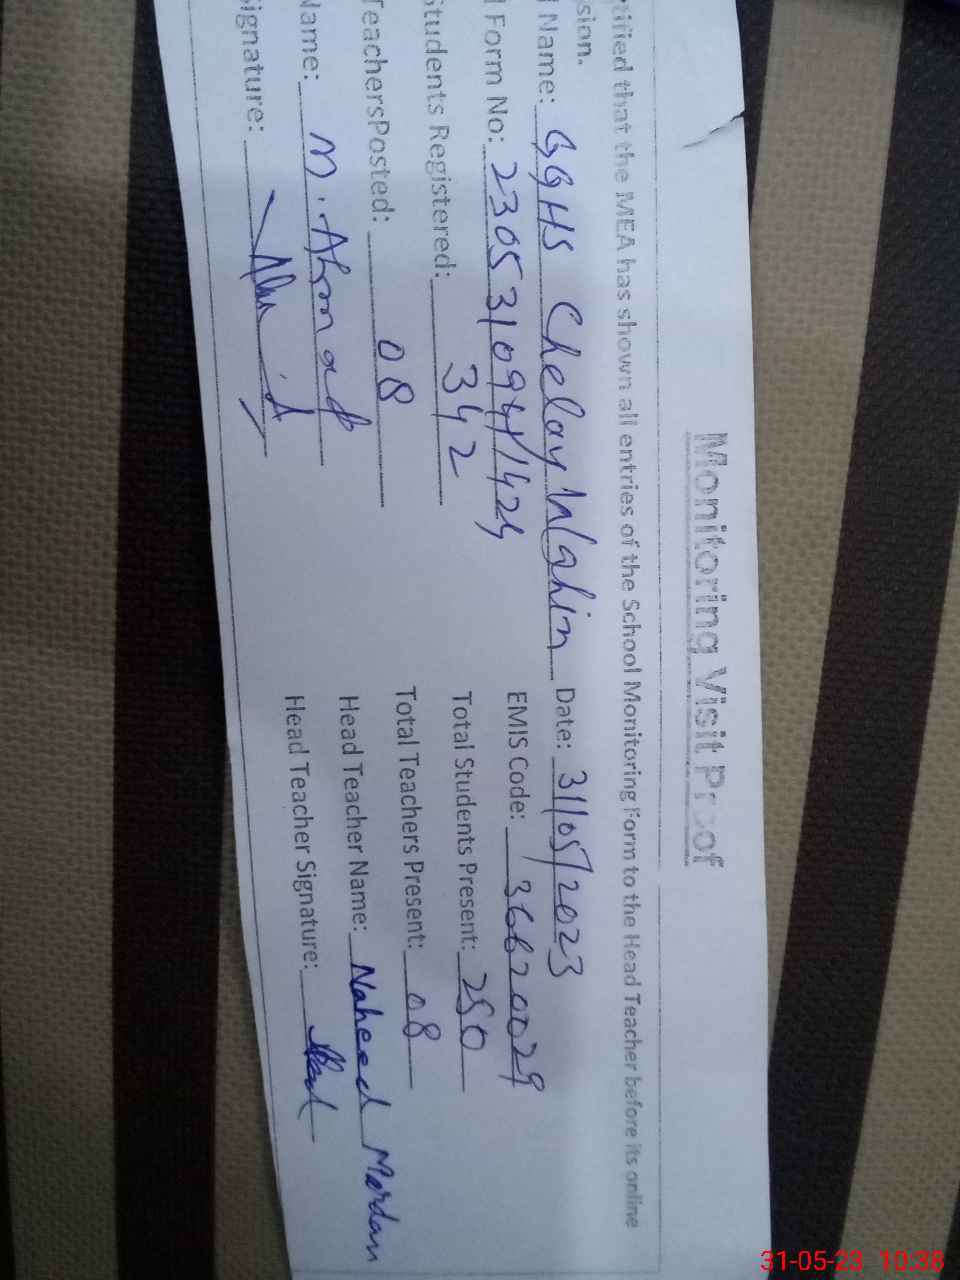 Monitoring Visit Proof
tified that the MEA has shown all entries of the School Monitoring Form to the Head Teacher before its online
sion.
l Name: GGHS Chelay Wahin Date: 31/05/2023
l Form No: 2305310941424 EMIS Code: 36620029
Students Registered: 342 Total Students Present: 250
TeachersPosted: 08 Total Teachers Present: 08
Name: M. Ahmad Head Teacher Name: Naheed Mardan
Signature: Head Teacher Signature:
31-05-23 10:38